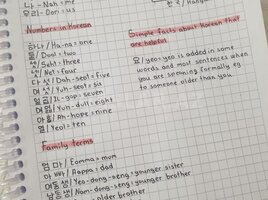 나 - Nah = me
우리 - Oori = us
Numbers in Korean
하나 / Ha-na = one
둘 / Dool = two
셋 / Seht = three
넷 / Net = four
다섯 / Dah-seot = five
여섯 / Yuh-seot = six
일곱 / Il-gop = seven
여덟 / Yuh-dull = eight
아홉 / Ah-hope = nine
열 / Yeol = ten
Family terms
엄마 / Eomma = mom
아빠 / Appa = dad
여동생 / Yeo-dong-seng: younger sister
남동생 / Nam-dong-seng: younger brother
older brother
한국 / Hangu
Simple facts about Korean that
are helpful
요 / yeo = yeo is added in some
words and most sentences when
you are speaking formally eg
to someone older than you